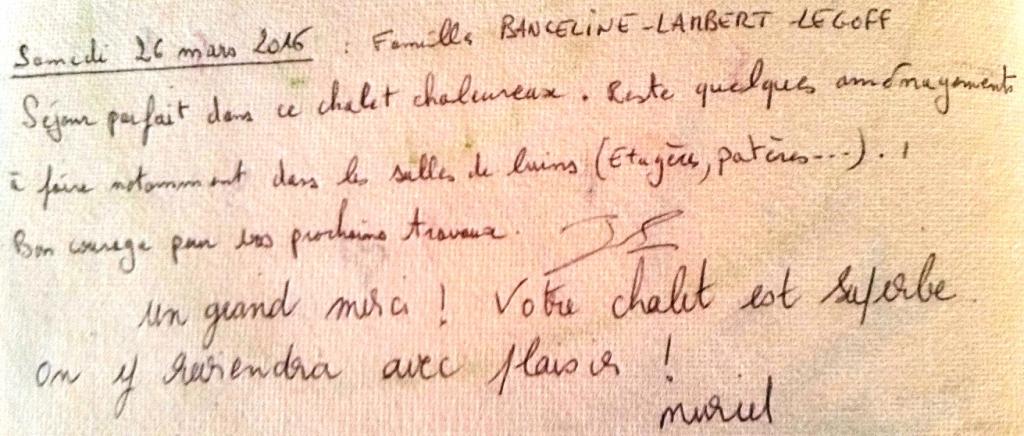 Samedi 26 mars 2016 : Famille BANCELINE-LAMBERT-LEGOFF
Séjour parfait dans ce chalet chaleureux. Reste quelques aménagements
à faire notamment dans les salles de bains (Etagères, patères---). !
Bon courage pour vos prochains travaux.
un grand merci ! Votre chalet est superbe.
on y reviendra avec plaisir !
muriel